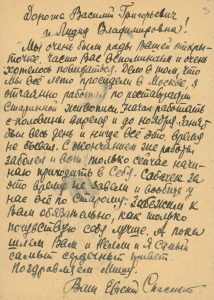 3
Дорогие Василий Григорьевич
и Лидия Владимировна!
Мы очень были рады Вашей открыт-
ке, часто Вас вспоминаем и очень
хотелось повидаться. Дело в том, что
мы все лето просидели в Москве, я
отчаянно работал по реставрации
старинной живописи. Начал работать
с половины апреля и до ноября. Занят
был весь день и нигде всё это время
не бывал. С окончанием же работы,
заболел и вот только сейчас начи-
наю приходить в себя. Совсем за
это время не писал и вообще у
нас всё по-старому. Заедем к
Вам обязательно, как только
почувствую себя лучше. А пока
шлем Вам и я самый
самый сердечный привет
Поздравляем
Ваш Евгений